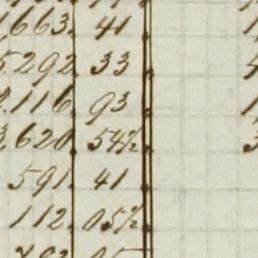 ,663. 41
5.292 33
.116. 93
3,620. 54½
591. 41
112. 05½